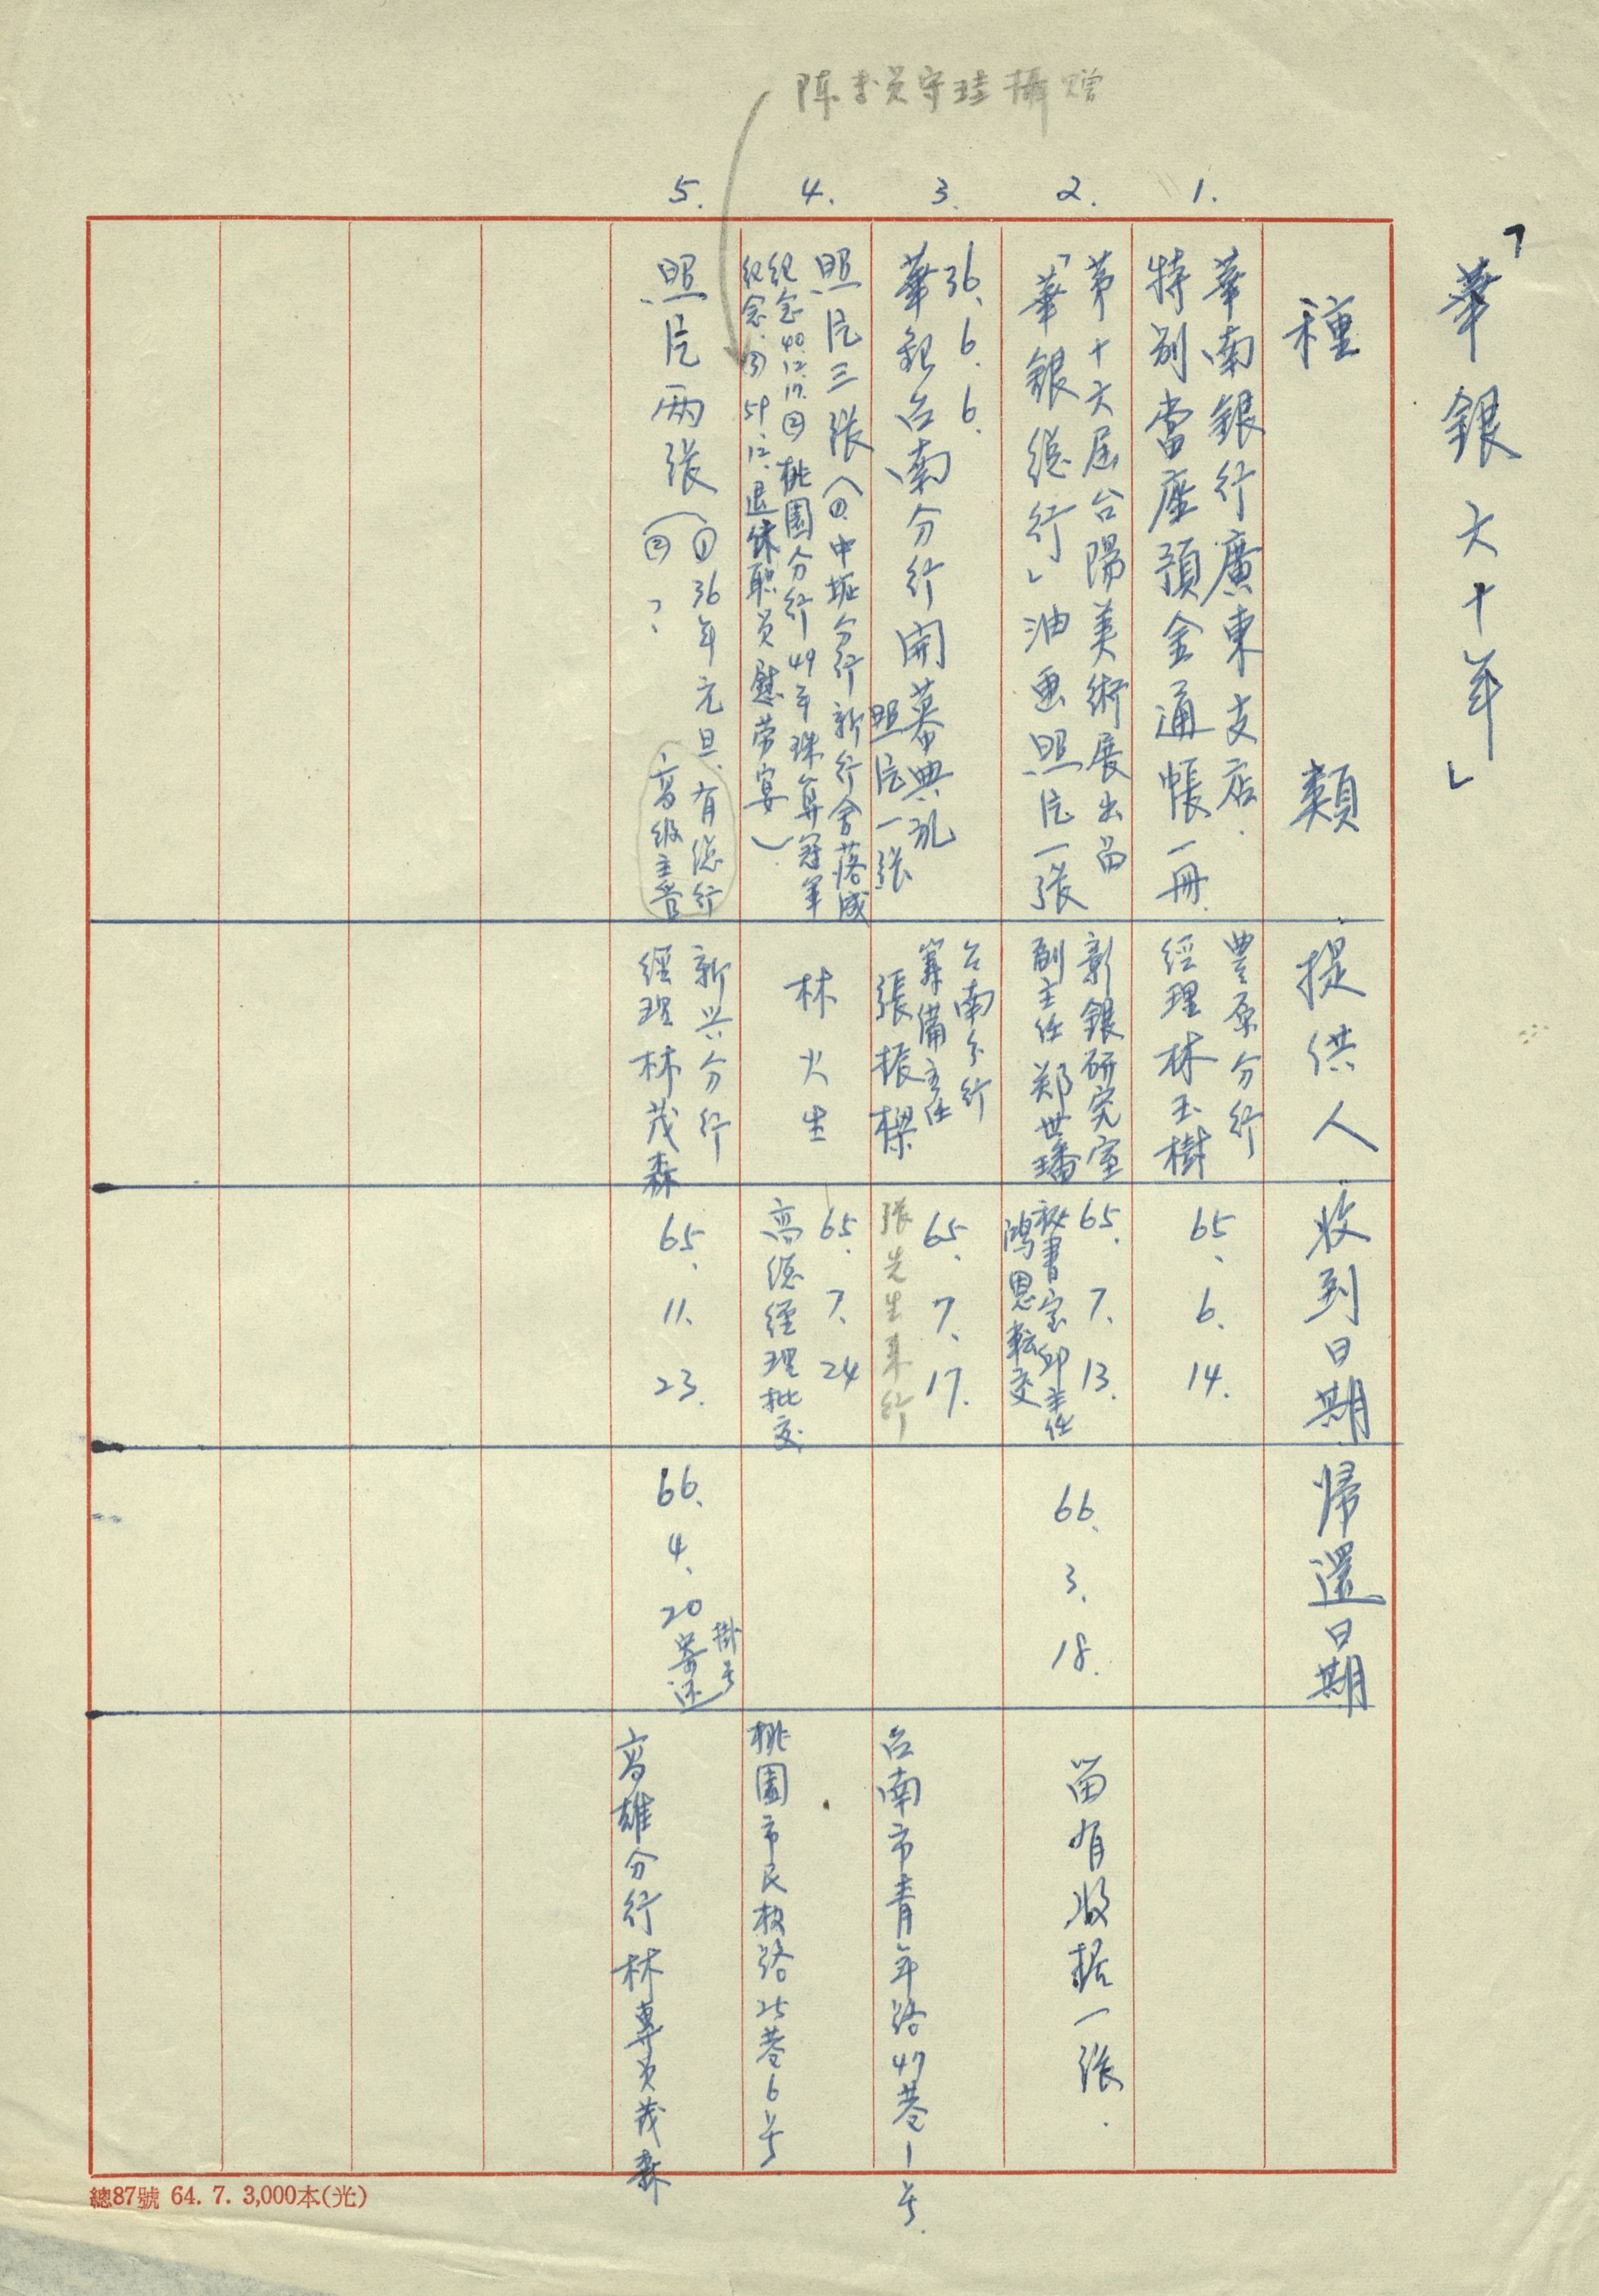 「華銀六十年」
陈
守珪攝赠
種類
提供人
收到日期
歸還日期
1.
華南銀行廣東支店.
特別當座預金通帳一冊.
豐原分行
經理林玉樹
65、6、14.
2.
第十六届台陽美術展出品
「華銀總行」油画照片一張
彰銀研究室
副主任郑世璠
65.7、13.
秘書室 主任
鴻恩転交
66、3、18.
留有收据一張.
3.
36、6、6.
華銀台南分行開幕典礼
照片一張
台南分行
籌備主任
張振樑
65、7、17.
張先生来行
台南市青年路47巷1号.
4.
照片三張(①.中壢分行新行舍落成
纪念40.12.17.②桃園分行49年珠算冠軍
纪念.③59.12.退休职员慰劳宴).
林火生
65.7.24
高總經理批交
桃園市民权路25巷6号
5.
照片两張(①36年元旦、有總行
②?
、高級主管
新兴分行
經理林茂森
65、11.23.
66、4、20掛号
寄还
高雄分行林專員茂森
總87號 64. 7. 3,000本(光)